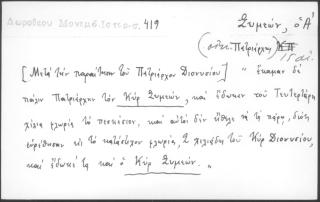 Δωροθέου Μονεμβ. Ιστορ. σ. 419
Συμεών, ὁ Α'
(οἰκ. Πατριάρχης) ΚΠ
[Μετὰ τὴν παραίτησιν τοῦ Πατριάρχου Διονυσίου] " ἔκαμαν δὲ
πάλιν Πατριάρχην τὸν Κὺρ Συμεών, καὶ ἔδωκεν τοῦ Τευτερτάρη
χίλια φλωρία τὸ πεσκέσιον, καὶ αὐτὸς δὲν ἤθελε νὰ τὰ πάρῃ, διότι
εὑρέθησαν εἰς τὸ κατάστιχον φλωρία, 2 χιλιάδες τοῦ Κὺρ Διονυσίου,
καὶ ἔδωκέ τα καὶ ὁ Κὺρ Συμεών. "